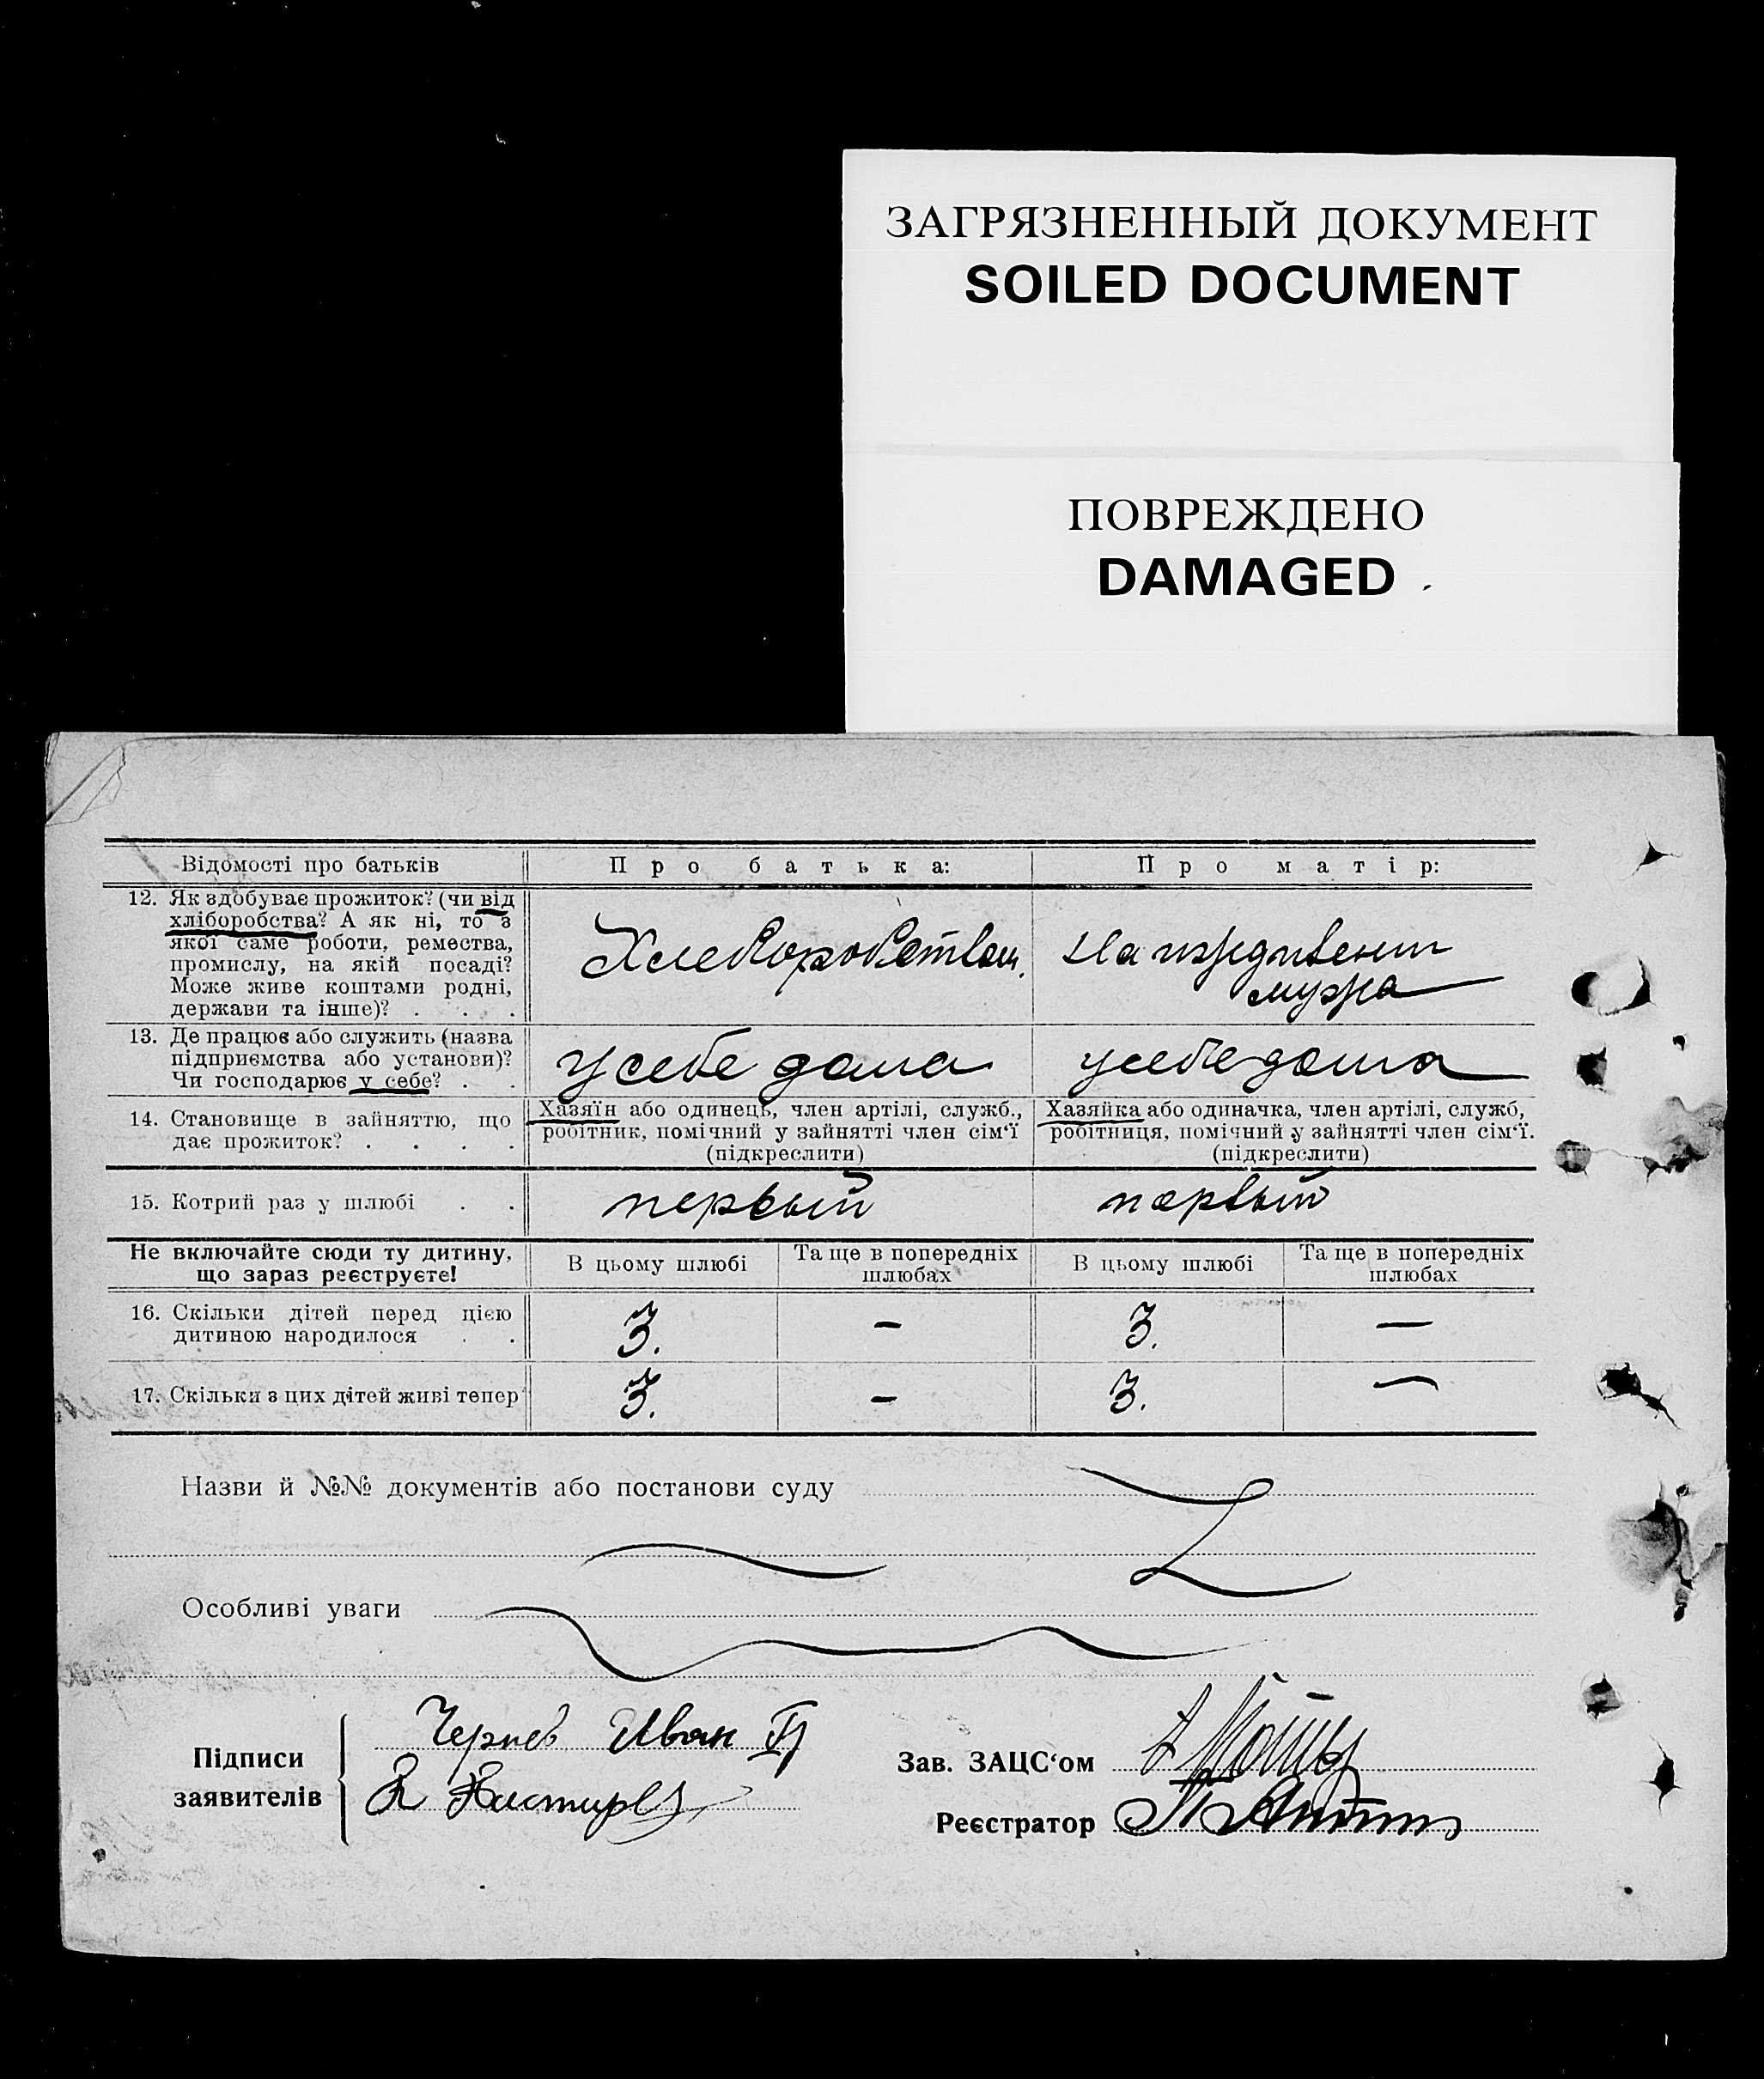 ЗАГРЯЗНЕННЫЙ ДОКУМЕНТ
SOILED DOCUMENT
ПОВРЕЖДЕНО
DAMAGED
Відомості про батьків
Про батька:
Про матір:
12. Як здобуває прожиток? (чи від
хліборобства? А як ні, то з
якої саме роботи, ремества,
промислу, на якій посаді?
Може живе коштами родні,
держави та інше)? . . .
Хлеборобством.
На иждивении
мужа
13. Де працює або служить (назва
підприємства або установи)?
Чи господарює у себе? . .
у себе дома
у себе дома
14. Становище в зайняттю, що
дає прожиток? . . . .
Хазяїн або одинець, член артілі, служб.,
робітник, помічний у зайнятті член сім‘ї
(підкреслити)
Хазяйка або одиначка, член артілі, служб,
робітниця, помічний у зайнятті член сім‘ї.
(підкреслити)
15. Котрий раз у шлюбі . .
первый
первый
Не включайте сюди ту дитину,
що зараз реєструєте!
В цьому шлюбі
Та ще в попередніх
шлюбах
В цьому шлюбі
Та ще в попередніх
шлюбах
16. Скільки дітей перед цією
дитиною народилося . .
3.
—
3.
—
17. Скільки з цих дітей живі тепер
3.
—
3.
—
Назви й №№ документів або постанови суду
Особливі уваги
Підписи
заявителів
Чернев Иван
Зав. ЗАЦС‘ом
Реєстратор